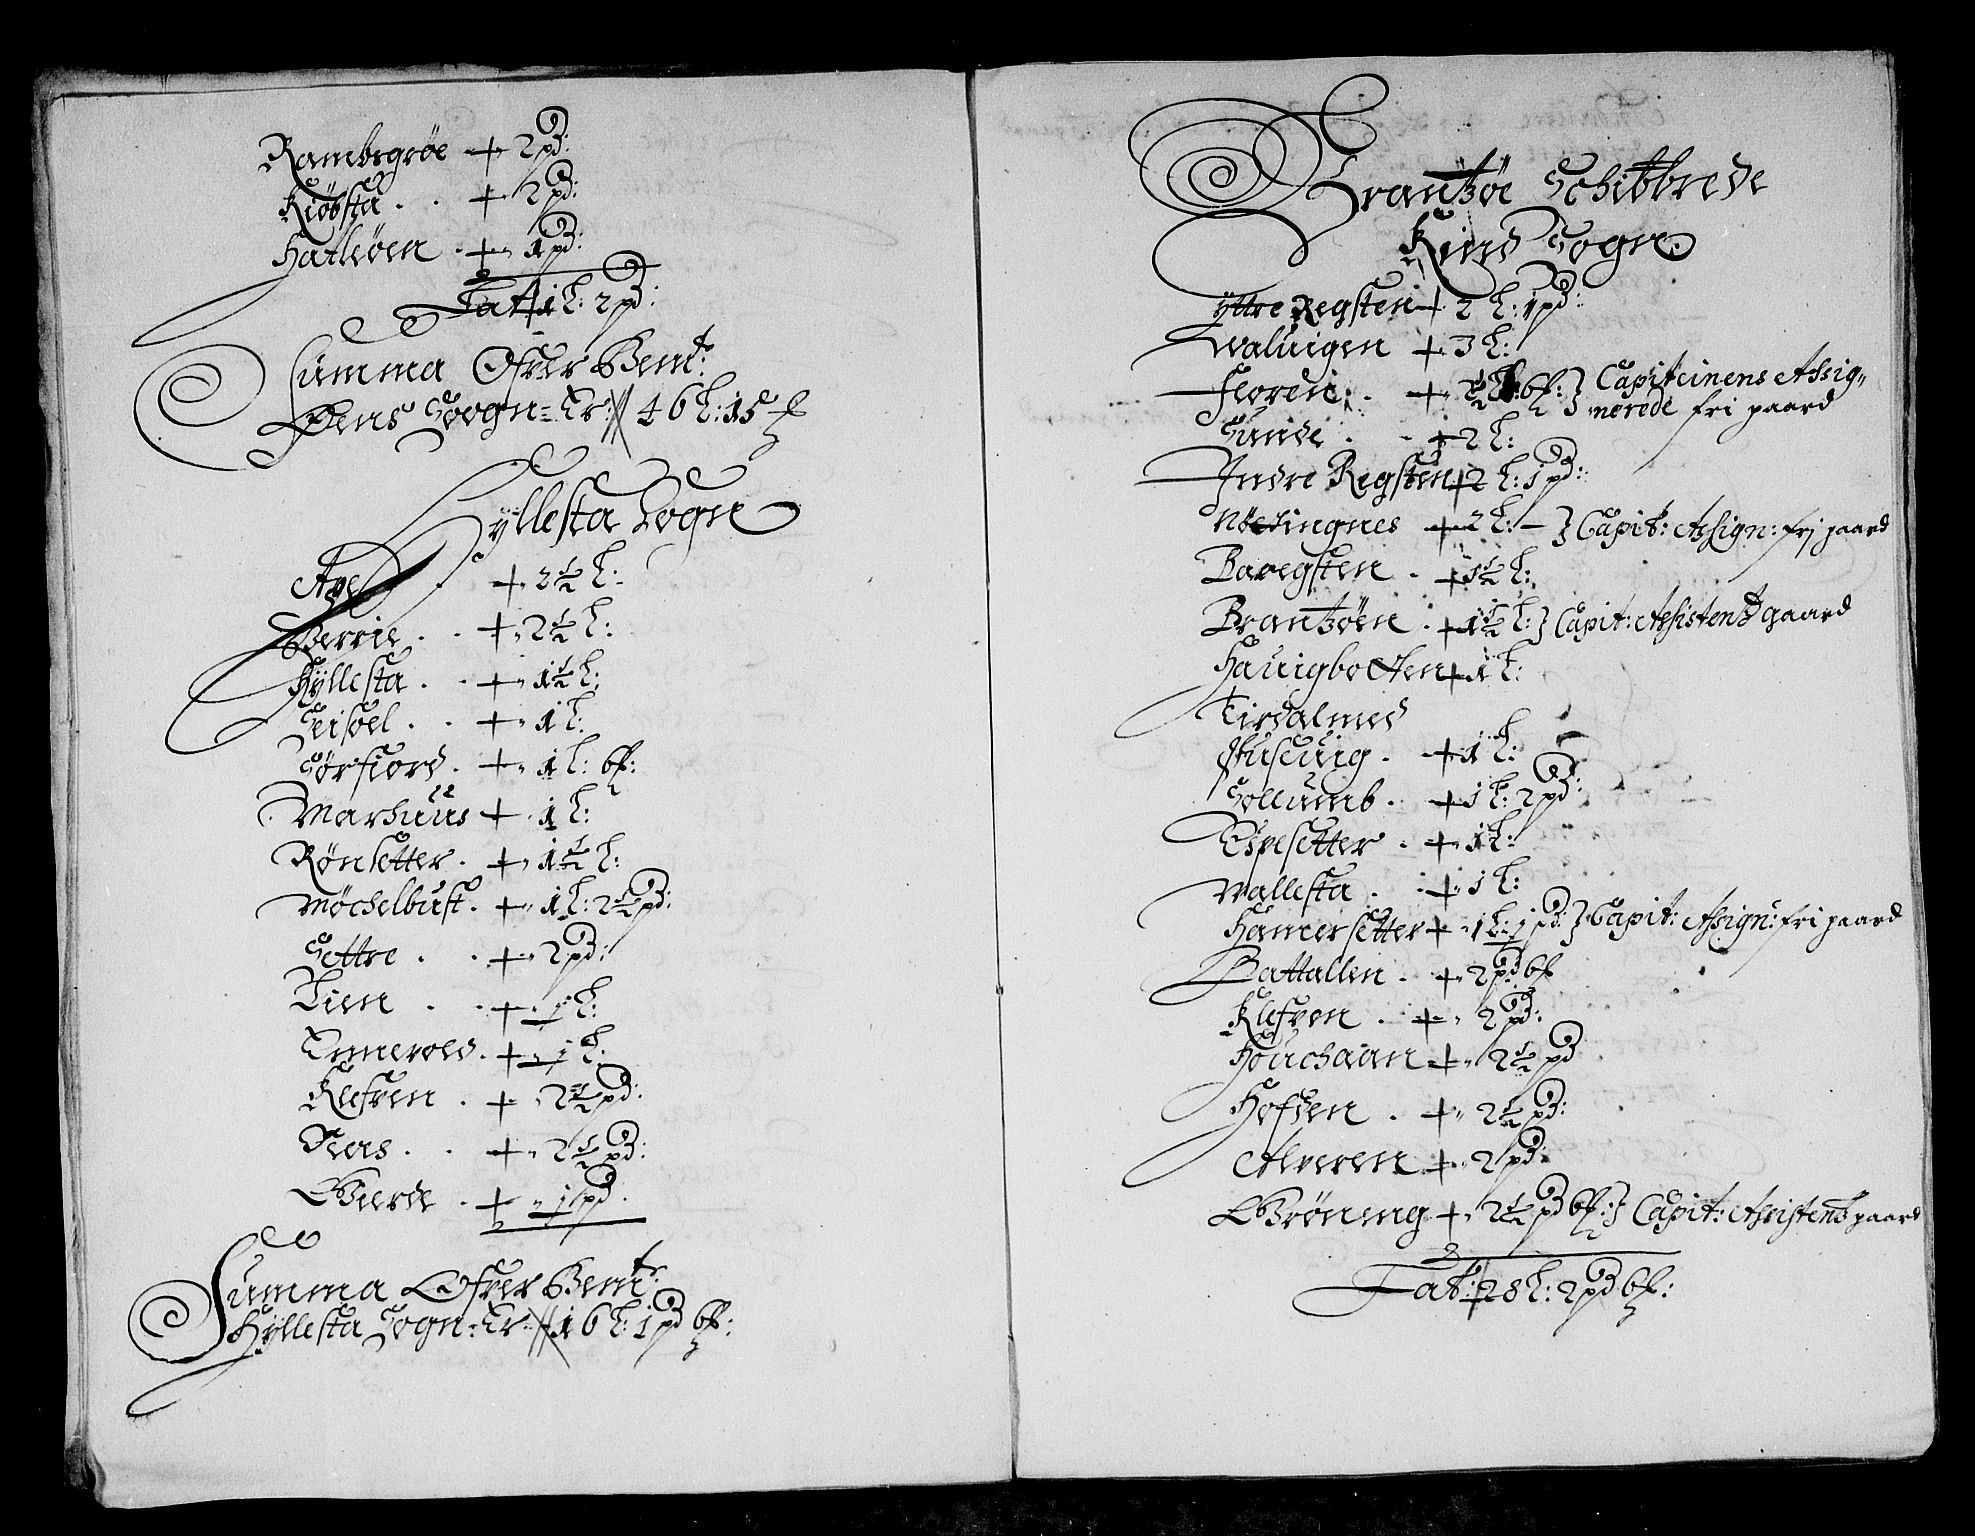 Rambsgröe + 2 pd:
Kiöbsta . . + 2 pd:
Hatleöen . + 1 pd:
Lat + 1 L: 2 pd:
Summa Ofver Bem:t
Sogn = Er: // 46 L: 15
Hyllesta Sogn
. + 2½ L:
Berrie . . + 2½ L:
Hÿllesta . . + 1½ L:
Seisoel . . + 1 L:
Sörfiord . + 1 L: bf:
Marhuus + 1 L:
Rönsetter . + 1½ L:
Möchelbust . + 1 L: 2½ pd:
Settre . . + 2 pd:
Lien . . + 1 L:
. + 1 L:
Klefven . + 2½ pd:
. . + 2½ pd:
Gierde . + 1 pd.
Summa Ofver Bem:t
Hyllesta Sogn = Er // 16 L: 1 pd bf:
Brantzöe Schibbrede
Kind Sogn
Yttre Regsten + 2 L: 1 pd:
Waluigen + 3 L:
Floren . . + bf: } Capiteinens Assig„
nerede fri gaard
Sunde . . + 2 L:
Indre Regsten + 2 L: 1 pd:
+ 2 L: – } Capit: Assign: frj gaard
Baregsten . + 1½ L:
Brantzöen . + 1½ L: } Capit: Assistentz gaard
Hauigbotten + 1 L:
Tirdalmed
Husevig . + 1 L:
Sollumb . + 1 L: 2 pd:
Espesetter . + 1 L:
Wallesta . . + 1 L:
Hamersetter + 1 L: 1 pd: } Capit: Assign: fri gaard
Battallen . + 2 pd bf
Klefven . + 2 pd:
Houchaan + 2½ pd
Hofden . + 2½ pd:
Alveren + 2 pd:
Grönning + 2½ pd bf: } Capit: Assistentz gaard
Lat: + 28 L: 2 pd bf: